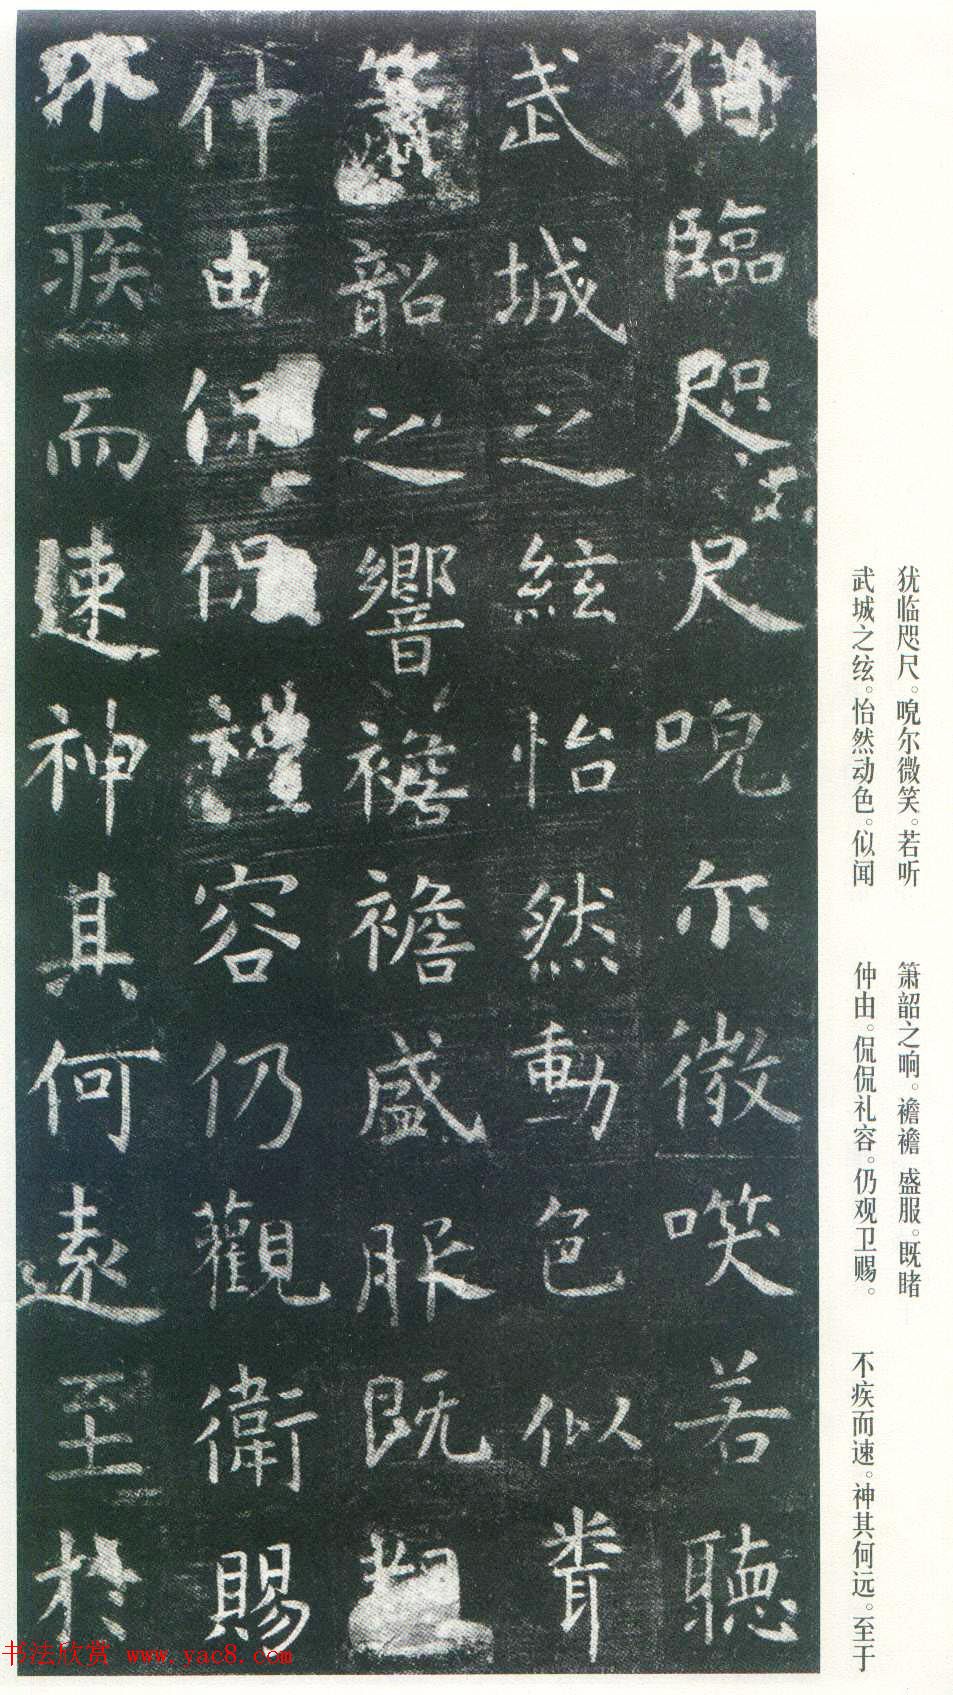 猶臨咫尺唲尔微㗛若聽
武城之絃怡然動色似𦖞
簫韶之響襜襜盛服既睹
仲由侃侃禮容仍觀衛賜
不疾而速神其何遠至於
犹临咫尺。唲尔微笑。若听
武城之絃。怡然动色。似闻
箫韶之响。襜襜盛服。既睹
仲由。侃侃礼容。仍观卫赐。
不疾而速。神其何远。至于
书法欣赏 www.yac8.com